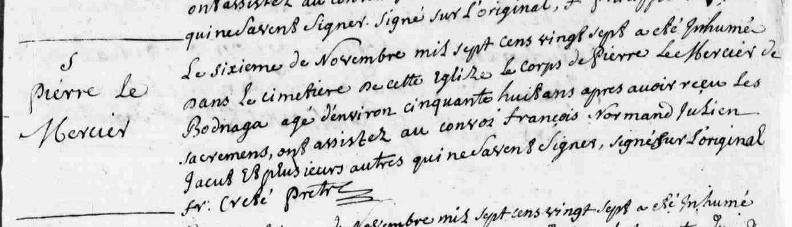 ont assistez au
qui ne Savent Signer. Signé sur L'original,
S
Pierre le
Mercier
Le sixieme de Novembre mil sept cens vingt sept a eté Inhumé
Dans Le cimetiere De cette Eglise Le corps de Pierre Le Mercier de
Bodnaga agé d'environ cinquante huit ans apres avoir reçu Les
sacremens, ont assistez au convoi françois Normand Julien
Jacut Et plusieurs autres qui ne Savent Signer, signé sur L'original
fr. Creté Pretre
Novembre mil sept cens vingt sept a eté Inhumé